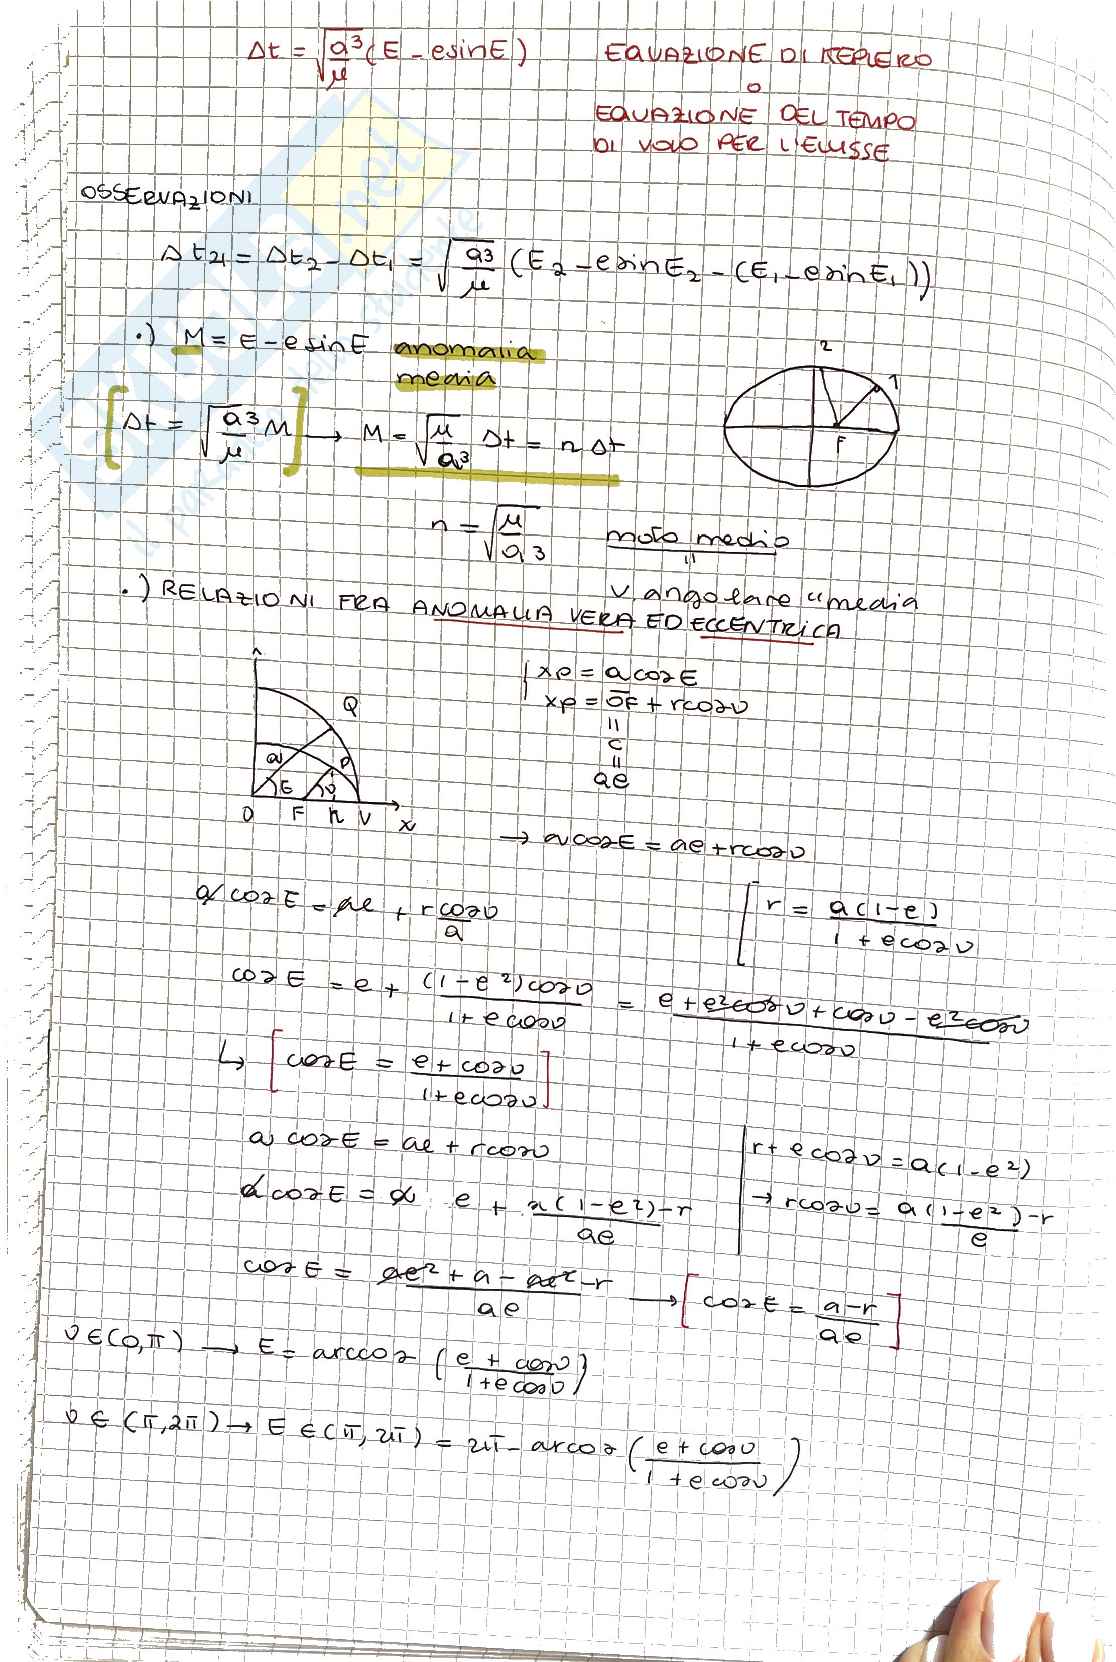 Δt = √(a³/μ) (E - esinE) EQUAZIONE DI KEPLERO
O
EQUAZIONE DEL TEMPO
DI VOLO PER L'ELLISSE
OSSERVAZIONI
Δt21 = Δt2 - Δt1 = √(a³/μ) (E2 - esinE2 - (E1 - esinE1))
·) M = E - e sinE anomalia
media
2
1
F
[Δt = √(a³/μ) M] → M = √(μ/a³) Δt = n Δt
n = √(μ/a³) moto medio
"
v angolare "media
·) RELAZIONI FRA ANOMALIA VERA ED ECCENTRICA
xp = a cosE
xp = OF + rcosν
=
c
=
ae
Q
a
P
E
ν
O F R V x
→ a cosE = ae + rcosν
a cosE = ae + rcosν/a [r = a(1-e)/(1 + ecosν)
cosE = e + (1-e²)cosν/(1+ecosν) = (e + e²cosν + cosν - e²cosν)/(1+ecosν)
↳ [cosE = (e + cosν)/(1+ecosν)]
a cosE = ae + rcosν | r + ecosν = a(1-e²)
a cosE = a e + (a(1-e²)-r)/ae | → rcosν = (a(1-e²)-r)/e
cosE = (ae² + a - ae² - r)/ae → [cosE = (a-r)/ae]
ν ∈ (0,π) → E = arccos ((e + cosν)/(1+ecosν))
ν ∈ (π,2π) → E ∈ (π,2π) = 2π - arcos ((e + cosν)/(1 + ecosν))